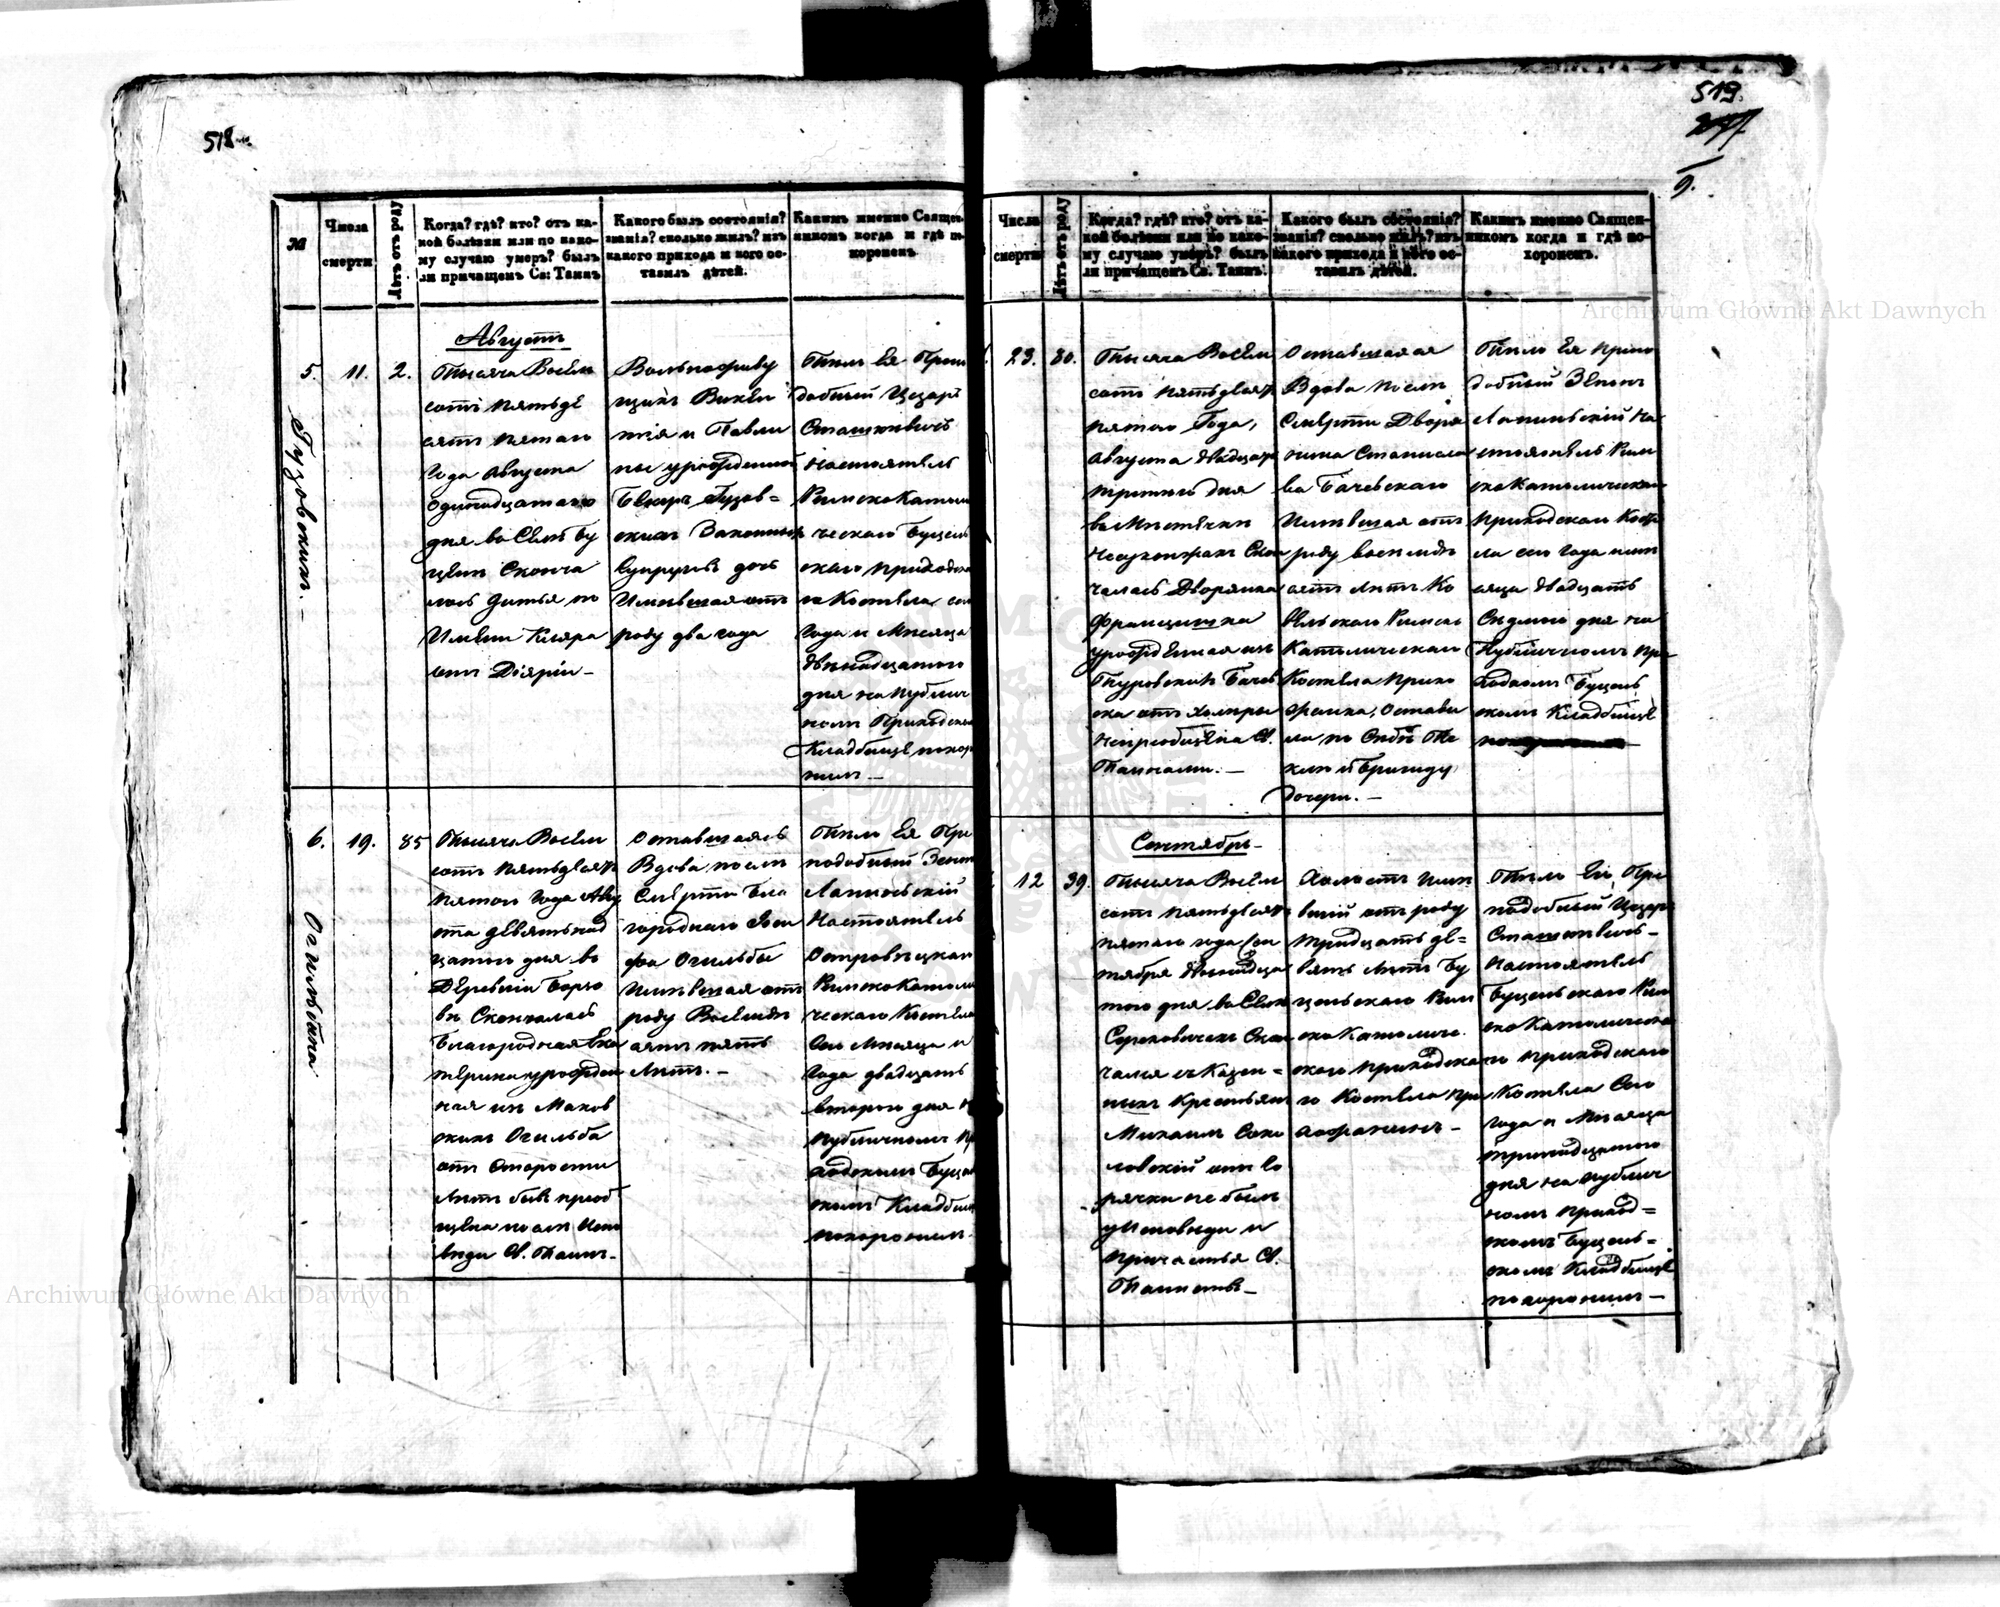 518
№
Числа
смерти
Лѣтъ отъ роду
Когда? гдѣ? кто? отъ ка-
кой болѣзни или по како-
му случаю умеръ? былъ
ли причащенъ Св: Таинъ
Какого былъ состоянія?
званія? сколько жилъ? изъ
какого прихода и кого ос-
тавилъ дѣтей.
Какимъ именно Священ-
никомъ когда и гдѣ по-
хороненъ
Августъ
5.
Гузовскихъ. —
11.
2.
Тысяча Восѣм
сотъ пятьде
сятъ пятаго
года Августа
Одинадцатаго
дня во Селѣ Бу
цѣнѣ Сконча
лось Дитья по
Имѣни Кляра
отъ Дiяріи —
Вольнопризу
Викен
тія и Павли
ны урожденной
Гузов=
скихъ Законныхъ
Супруговъ дочь
Имѣвшая отъ
роду два года
Тѣло Ея Преп
добный Цезарь
Сташкевичъ
Настоятель
Римско Катол
ческаго Буцень
скаго приходска
го Костела сего
года и Мѣсяца
двѣнадцатого
дня на публич
номъ Приходском
Кладбищѣ похор
нилъ —
6.
Огильбина
19.
85
Тысяча Восѣм
сотъ пятьдесятъ
пятого года Авгу
ста девятьнад
цатого дня во
Деревни Борзо
вѣ Скончалась
Благородная Ека
терина урожден
ная изъ Маков
скихъ Огильба
отъ Старости
Лѣтъ бывъ приоб
щена послѣ Испо
вѣди Св. Таинъ. —
Оставшаясь
Вдова послѣ
Смерти Бла
городнаго Іоси
фа Огильбы
Имѣвшая отъ
роду Восѣмдѣ
сятъ пять
Лѣтъ. —
Тѣло Ея Пре
подобный Зенон
Лапинскій
Настоятель
Островѣцкаго
Римско Католи
ческаго Костела
Сего Мѣсяца и
года двадцать
втораго дня н
публичномъ пр
ходскомъ Буцен
скомъ Кладбищ
похоронилъ —
519.
9.
Числа
смерти
Лѣтъ отъ роду
Когда? гдѣ? кто? отъ ка-
кой болѣзни или по како-
му случаю умеръ? былъ
ли причащенъ Св. Таинъ.
Какого былъ состоянія?
званія? сколько жилъ? изъ
какого прихода и кого ос-
тавилъ дѣтей.
Какимъ именно Священ-
никомъ когда и гдѣ по-
хороненъ.
23.
80.
Тысяча Восѣм
сотъ пятьдесятъ
пятого Года,
Августа двадцать
третьего дня
во Мѣстечки
Скон
чалась Дворянка
Францишка
урожденная изъ
Бачев
ска отъ Холеры
непреобщена Св.
Таинами. —
Оставшаяя
Вдова послѣ
Смерти Дворя
нина Станисла
ва Бачевскаго
Имѣвшая отъ
роду восемьдѣ
сятъ лѣтъ Ко
вельскаго Римско
Католическаго
Костела прихо
жанка, Остави
ла по Себѣ Те
клю и Бригиду
дочери. —
Тѣло Ея препо
добный Зенонъ
Лапинскій На
стоятель Рим
ско Католическаго
Приходскаго Косте
ла сего года мѣс
яца двадцать
Седмого дня на
Публичномъ при
ходскомъ Буцень
скомъ Кладбищѣ
Сентябрь —
12
39.
Тысяча Восѣм
сотъ пятьдесятъ
пятаго года Сен
тября двѣнадца
того дня во Селѣ
Скон
чался съ Казен=
ныхъ Крестьян
Михаилъ Соко
ловскій отъ Го
рячки не былъ
у Исповѣди и
Причастья Св.
Таинствъ —
Холостъ имѣ
вшій отъ роду
тридцать де=
вять лѣтъ Бу
ценьскаго Рим
ско Католиче.
скаго приходска
го Костела при
хожанинъ —
Тѣло Его Пре
подобный Цезарь
Сташкевичъ —
Настоятель
Буценьскаго Рим
ско Католическа
го приходскаго
Костела Сего
года и Мѣсяца
тринадцатого
дня на публич
номъ приход=
скомъ Буцень=
скомъ Кладбищѣ
похоронилъ —
Archiwum Główne Akt Dawnych
Archiwum Główne Akt Dawnych